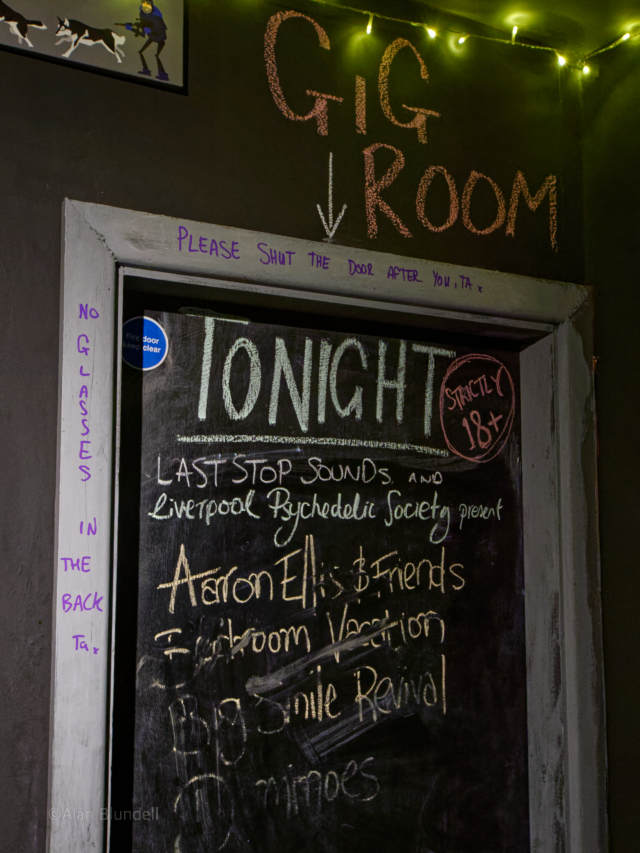 GIG
ROOM
PLEASE SHUT THE DOOR AFTER YOU, TA x
NO
GLASSES
IN
THE
BACK
Ta x
Fire door
keep clear
TONIGHT
STRICTLY
18+
LAST STOP SOUNDS AND
Liverpool Psychedelic Society present
Aaron Ellis & Friends
room Vacation
Big Smile Revival
mimoes
© Alan Blundell